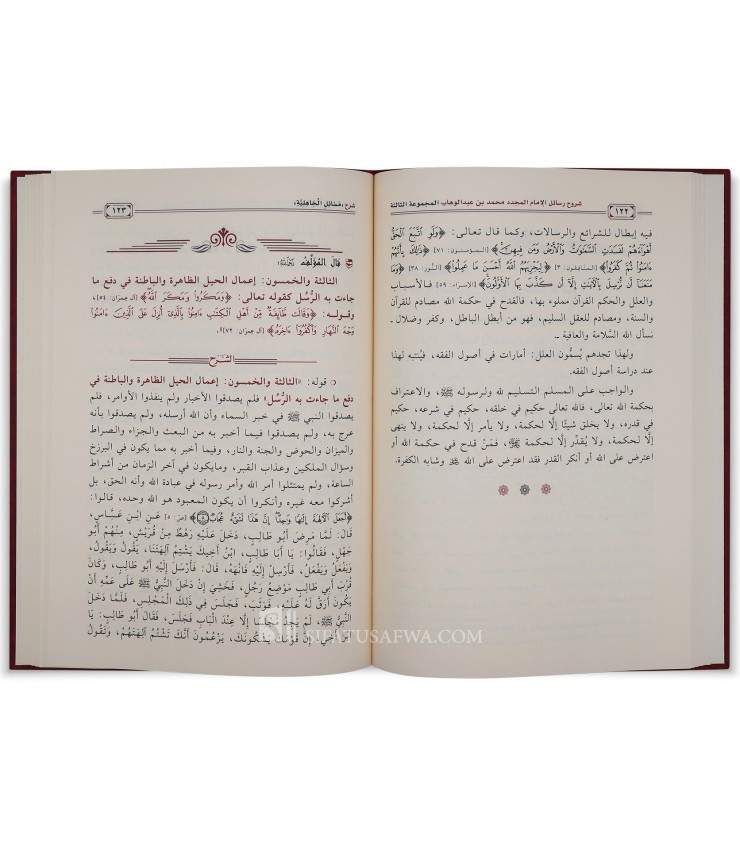 شروح رسائل الإمام المجدد محمد بن عبدالوهاب المجموعة الثالثة
١٢٢
فيه إبطال للشرائع والرسالات، وكما قال تعالى: ﴿وَلَوِ ٱتَّبَعَ ٱلْحَقُّ
أَهْوَآءَهُمْ لَفَسَدَتِ ٱلسَّمَٰوَٰتُ وَٱلْأَرْضُ وَمَن فِيهِنَّ﴾ [المؤمنون: ٧١] ﴿ذَٰلِكَ بِأَنَّهُمْ
ءَامَنُوا۟ ثُمَّ كَفَرُوا۟﴾ [المنافقون: ٣] ﴿لِيَجْزِيَهُمُ ٱللَّهُ أَحْسَنَ مَا عَمِلُوا۟﴾ [النور: ٣٨] ﴿وَمَا
مَنَعَنَآ أَن نُّرْسِلَ بِٱلْـَٔايَٰتِ إِلَّآ أَن كَذَّبَ بِهَا ٱلْأَوَّلُونَ﴾ [الإسراء: ٥٩] فالأسباب
والعلل والحكم القرآن مملوء بها، فالقدح في حكمة الله مصادم للقرآن
والسنة، ومصادم للعقل السليم، فهو من أبطل الباطل، وكفر وضلال ـ
نسأل الله السلامة والعافية ـ.
ولهذا تجدهم يُسمُّون العلل: أمارات في أصول الفقه، فيُنتبه لهذا
عند دراسة أصول الفقه.
والواجب على المسلم التسليم لله ولرسوله ﷺ، والاعتراف
بحكمة الله تعالى، فالله تعالى حكيم في خلقه، حكيم في شرعه، حكيم
في قدره، ولا يخلق شيئًا إلَّا لحكمة، ولا يأمر إلَّا لحكمة، ولا ينهى
إلَّا لحكمة، ولا يُقدِّر إلَّا لحكمة، فمَنْ قدح في حكمة الله أو
اعترض على الله أو أنكر القدر فقد اعترض على الله وشابه الكفرة.
شرح «مسائل الجاهلية»
١٢٣
قال المؤلف رحمه الله:
الثالثة والخمسون: إعمال الحيل الظاهرة والباطنة في دفع ما
جاءت به الرُّسل كقوله تعالى: ﴿وَمَكَرُوا۟ وَمَكَرَ ٱللَّهُ﴾ [آل عمران: ٥٤]،
وقوله: ﴿وَقَالَت طَّآئِفَةٌ مِّنْ أَهْلِ ٱلْكِتَٰبِ ءَامِنُوا۟ بِٱلَّذِىٓ أُنزِلَ عَلَى ٱلَّذِينَ ءَامَنُوا۟
وَجْهَ ٱلنَّهَارِ وَٱكْفُرُوٓا۟ ءَاخِرَهُۥ﴾ [آل عمران: ٧٢].
الشرح
قوله: «الثالثة والخمسون: إعمال الحيل الظاهرة والباطنة في
دفع ما جاءت به الرُّسل» فلم يصدقوا الأخبار ولم ينفذوا الأوامر، فلم
يصدقوا النبي ﷺ في خبر السماء وأن الله أرسله، ولم يصدقوا بأنه
عرج به، ولم يصدقوا فيما أخبر به من البعث والجزاء والصراط
والميزان والحوض والجنة والنار، وفيما أخبر به مما يكون في البرزخ
وسؤال الملكين وعذاب القبر، ومايكون في آخر الزمان من أشراط
الساعة، ولم يمتثلوا أمر الله وأمر رسوله في عبادة الله وأنه الحق، بل
أشركوا معه غيره وأنكروا أن يكون المعبود هو الله وحده، قالوا:
﴿أَجَعَلَ ٱلْـَٔالِهَةَ إِلَٰهًا وَٰحِدًا إِنَّ هَٰذَا لَشَىْءٌ عُجَابٌ﴾ [ص: ٥] عَنِ ابْنِ عَبَّاسٍ،
قَالَ: لَمَّا مَرِضَ أَبُو طَالِبٍ، دَخَلَ عَلَيْهِ رَهْطٌ مِنْ قُرَيْشٍ، مِنْهُمْ أَبُو
جَهْلٍ، فَقَالُوا: يَا أَبَا طَالِبٍ، ابْنُ أَخِيكَ يَشْتِمُ آلِهَتَنَا، يَقُولُ وَيَقُولُ،
وَيَفْعَلُ وَيَفْعَلُ، فَأَرْسِلْ إِلَيْهِ فَانْهَهُ، قَالَ: فَأَرْسَلَ إِلَيْهِ أَبُو طَالِبٍ، وَكَانَ
قُرْبَ أَبِي طَالِبٍ مَوْضِعُ رَجُلٍ، فَخَشِيَ إِنْ دَخَلَ النَّبِيُّ ﷺ عَلَى عَمِّهِ أَنْ
يَكُونَ أَرَقَّ لَهُ عَلَيْهِ، فَوَثَبَ، فَجَلَسَ فِي ذَلِكَ الْمَجْلِسِ، فَلَمَّا دَخَلَ
النَّبِيُّ ﷺ، لَمْ يَجِدْ إِلَّا عِنْدَ الْبَابِ فَجَلَسَ، فَقَالَ أَبُو طَالِبٍ: يَا
إِنَّ قَوْمَكَ يَشْكُونَكَ، يَزْعُمُونَ أَنَّكَ تَشْتُمُ آلِهَتَهُمْ، وَتَقُولُ
SIFATUSAFWA.COM